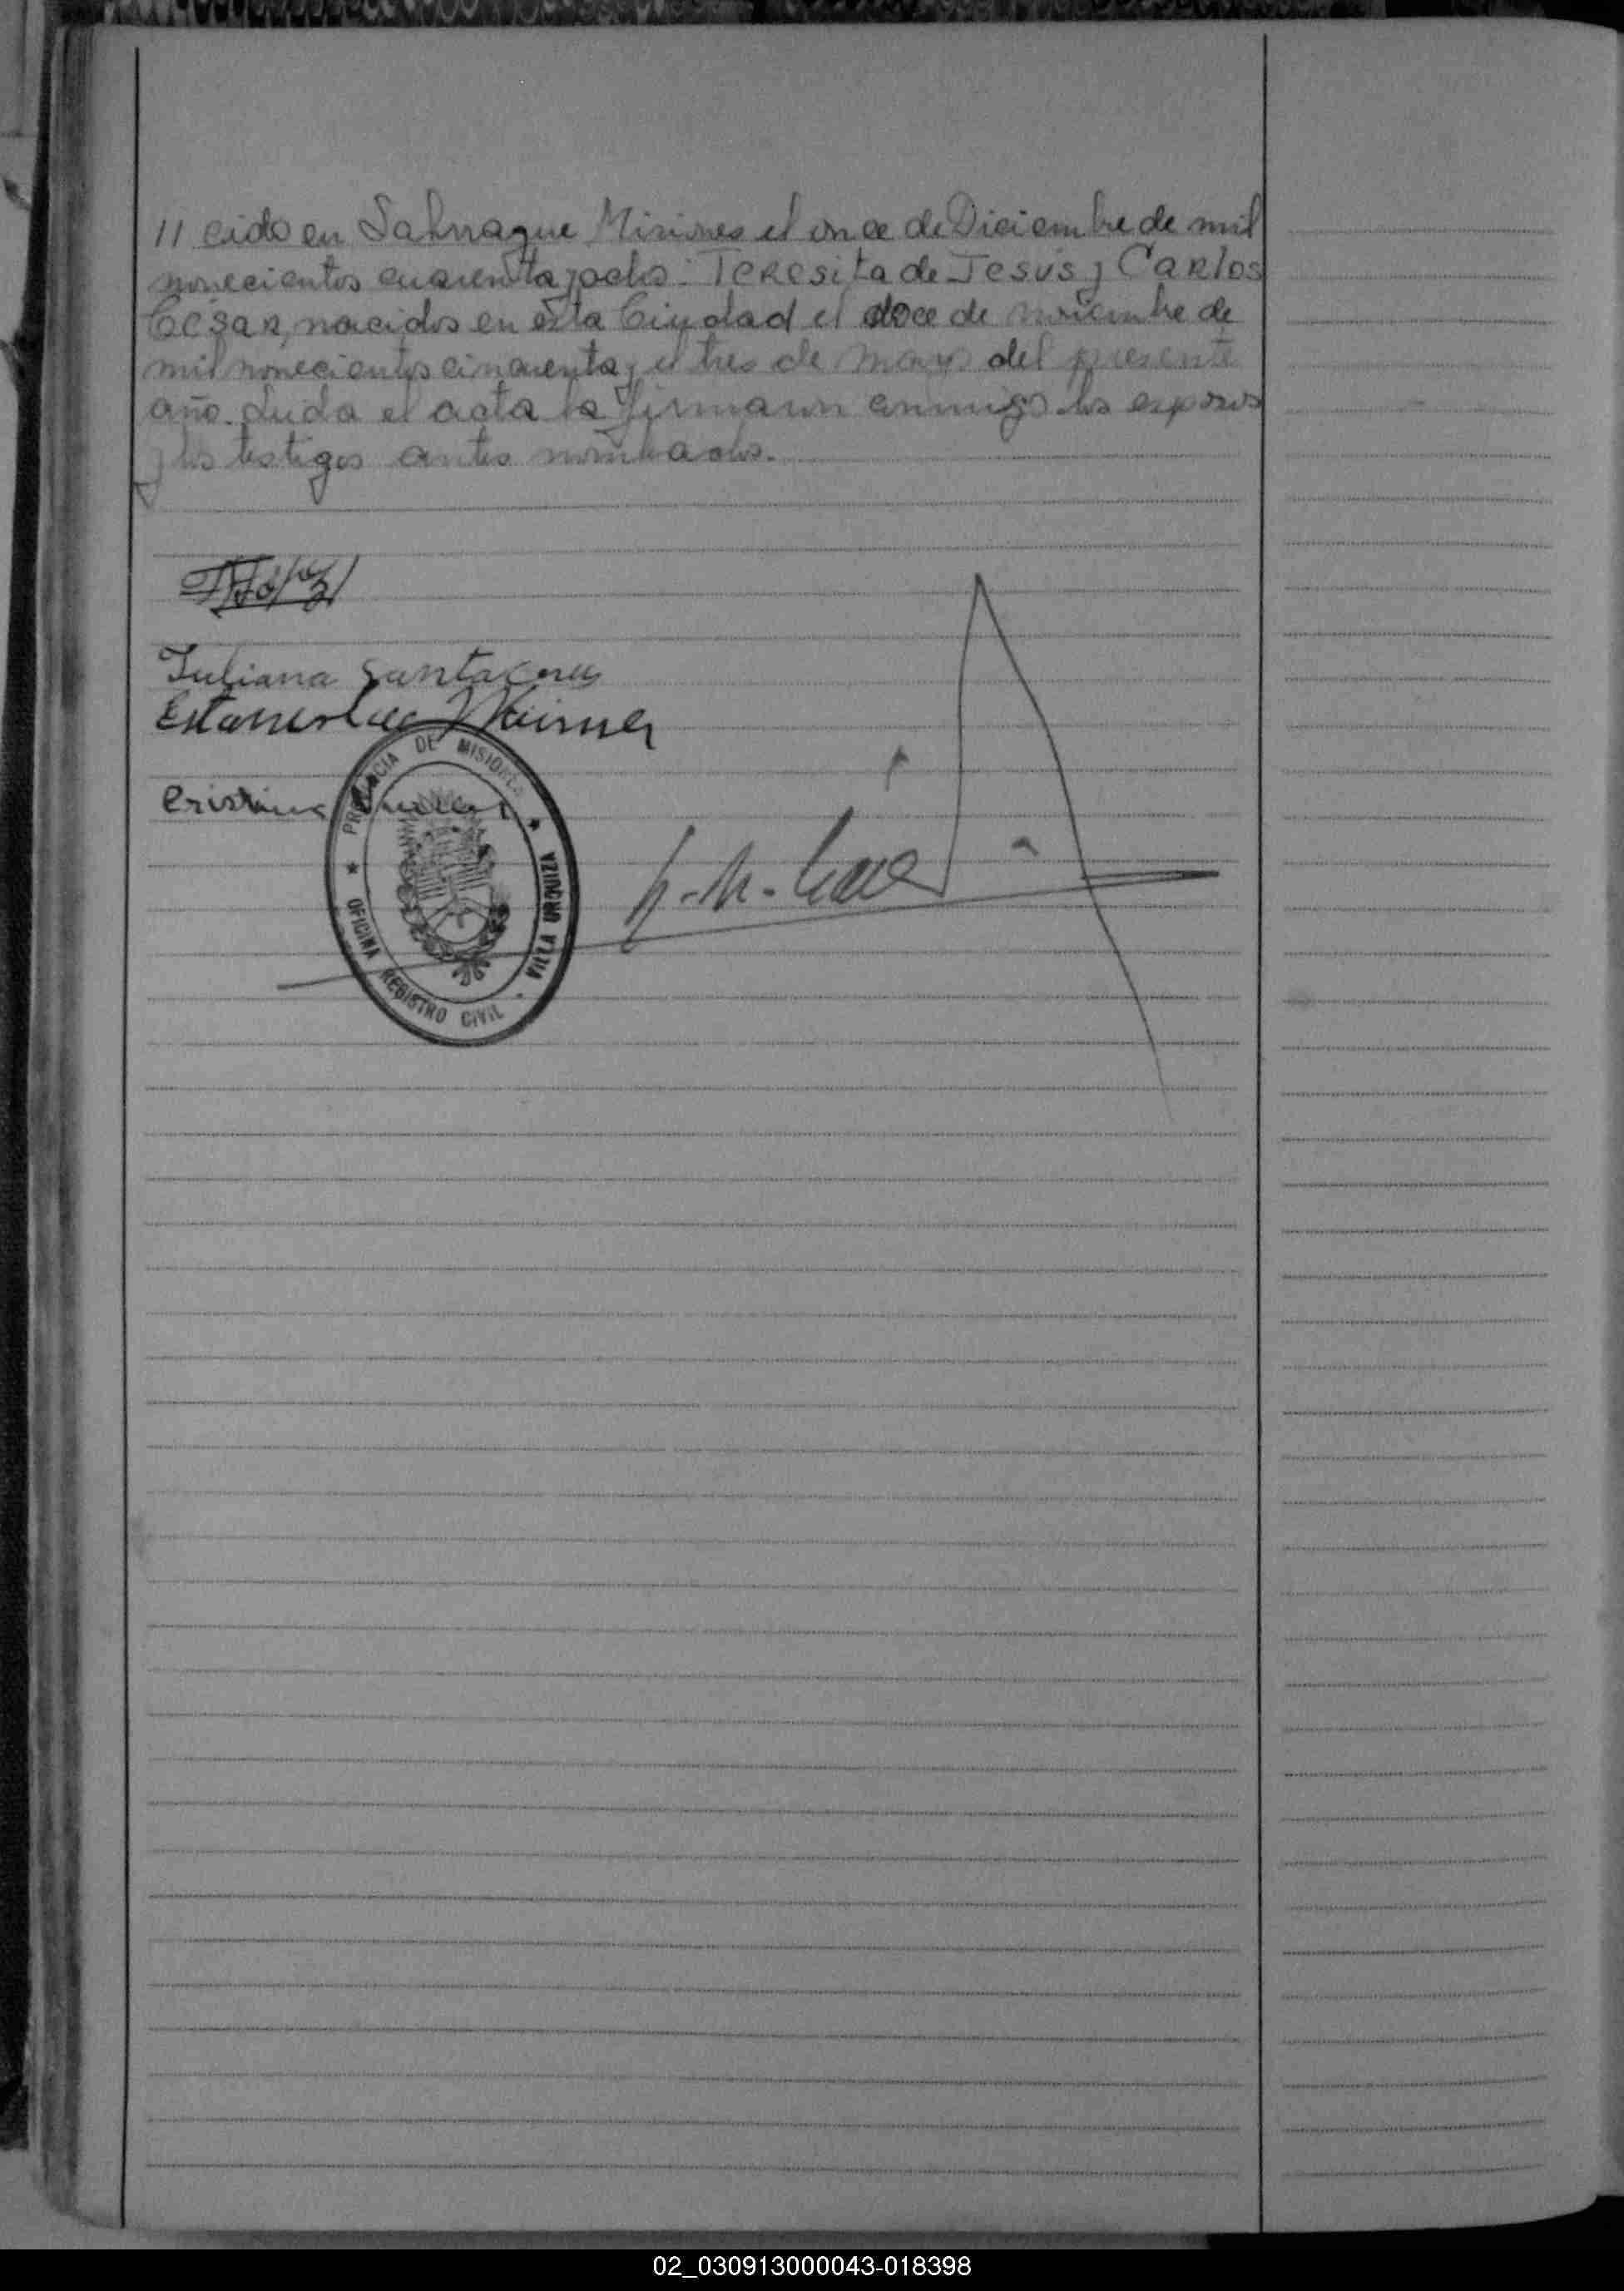 // cido en Misiones el once de Diciembre de mil
novecientos cuarenta y ocho: Teresita de Jesús y Carlos
César, nacidos en esta Ciudad el doce de noviembre de
mil novecientos cincuenta y el tres de mayo del presente
año. Leida el acta la firmaron conmigo los esposos
y los testigos antes nombrados.
Juliana Santacruz
Cristina
PROVINCIA DE MISIONES
OFICINA REGISTRO CIVIL - VILLA URQUIZA
02_030913000043-018398